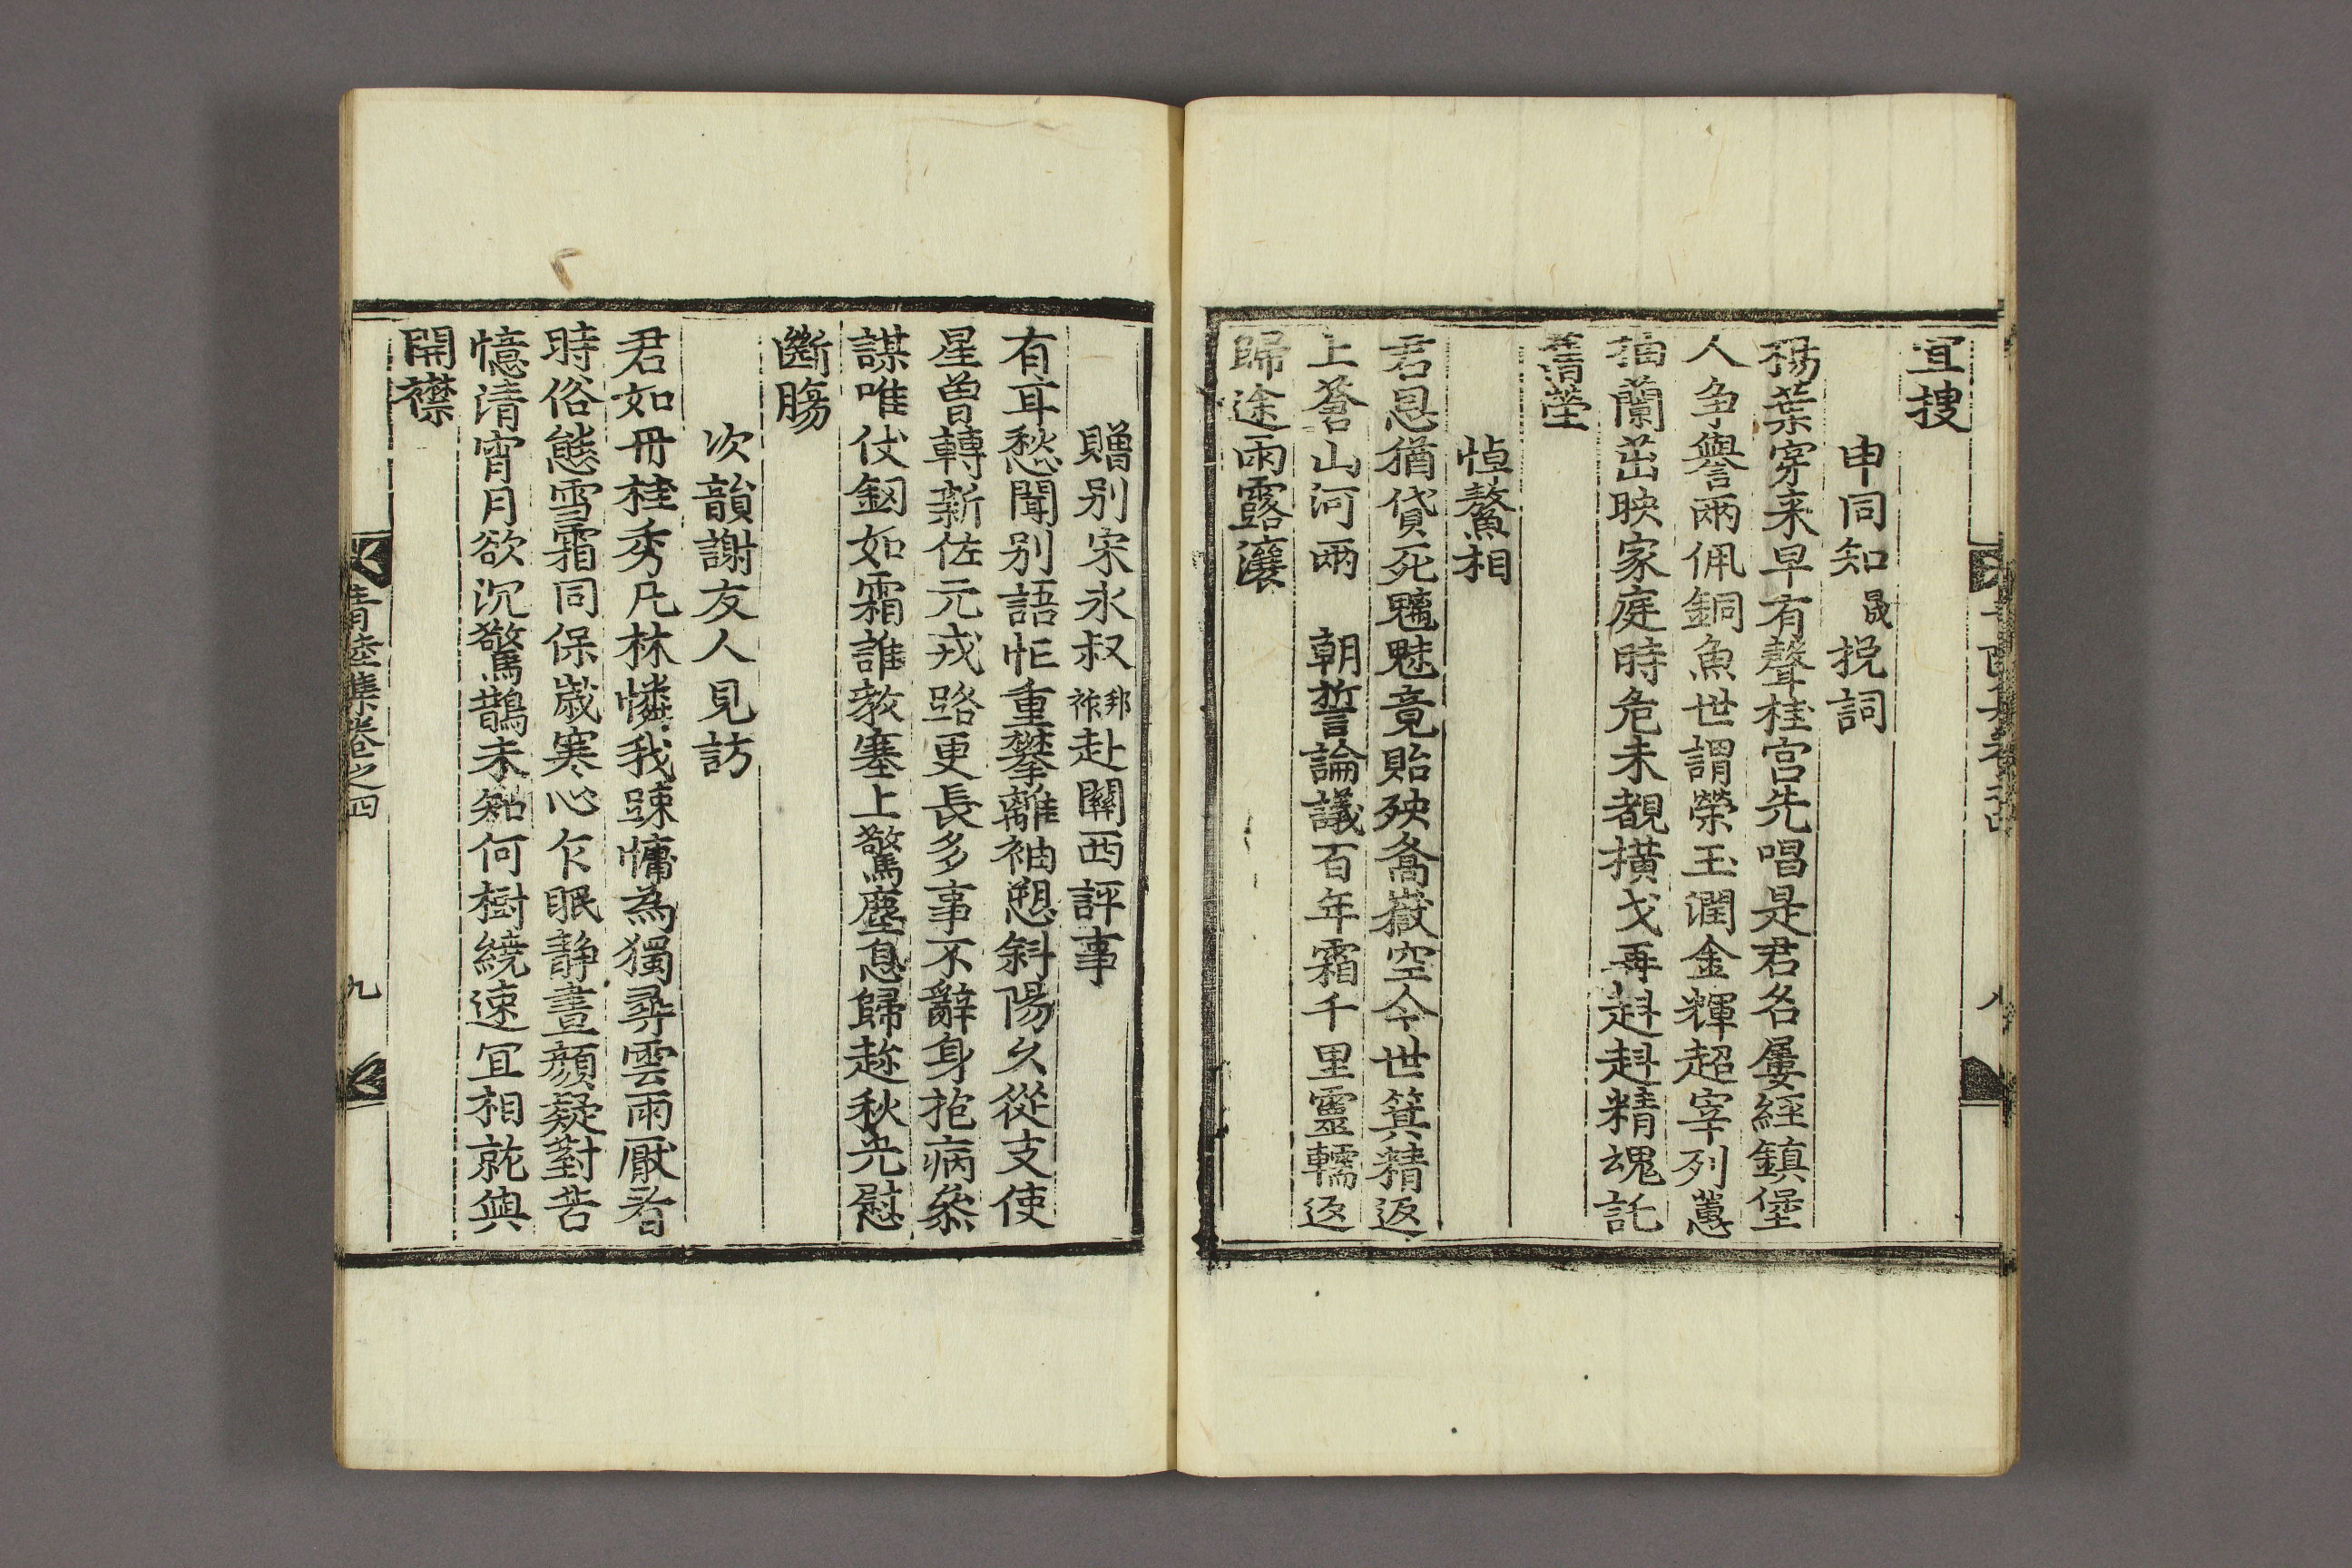 宜捜
申同知晟挽詞
楊葉穿来早有聲桂宮先唱是君名屢經鎮堡
人争譽兩佩銅魚世謂榮玉潤金輝超宰列蕙
抽蘭茁映家庭時危未覩橫戈再赳赳精魂託
舊塋
悼鰲相
君恩猶貸死魑魅竟貽殃喬嶽空今世箕精返
上蒼山河兩　朝誓論議百年霜千里靈轜返
歸途雨露瀼
贈别宋永叔邦祚赴關西評事
有耳愁聞别語忙重攀離袖愬斜陽久從支使
星曾轉新佐元戎路更長多事不辭身抱病叅
謀唯仗釼如霜誰敎塞上驚塵息歸趁秋光慰
斷膓
次韻謝友人見訪
君如丹桂秀凡林憐我踈慵為獨尋雲雨厭看
時俗態雪霜同保歲寒心乍眠静晝顔疑對苦
憶清宵月欲沉驚鵲未知何樹繞速宜相就與
開襟
青陸集卷之四
九